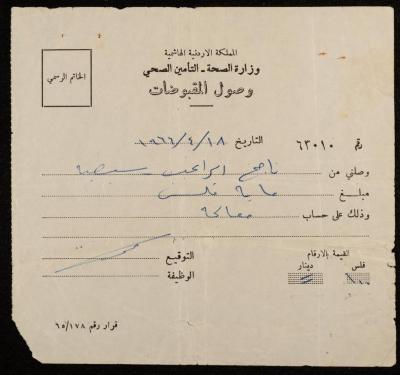 المملكة الاردنية الهاشمية
وزارة الصحة - التأمين الصحي
وصول المقبوضات
الخاتم الرسمي
رقم ٦٣٠١٠ التاريخ ١٩٦٦/٤/١٨
وصلني من ناجح
مبلغ ماية فلس
وذلك على حساب معالجة
القيمة بالارقام
فلس دينار
التوقيع
الوظيفة
قرار رقم ٦٥/١٧٨